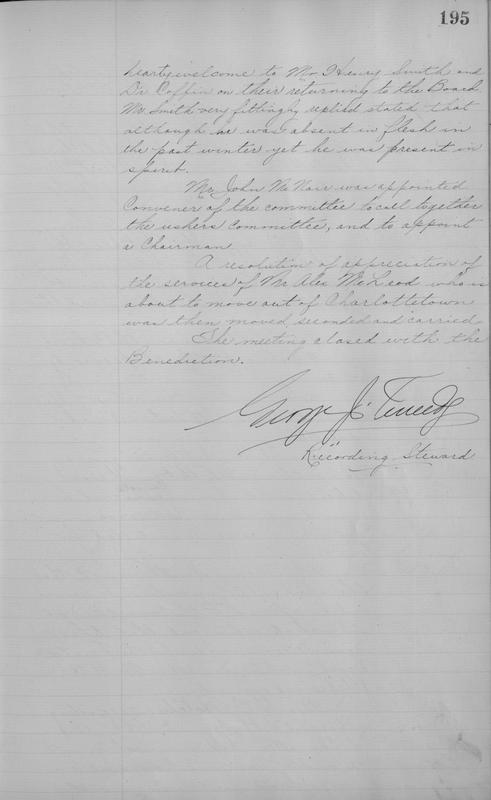 195
hearty welcome to Mr Henry Smith and
Dr Coffin on their returning to the Board
Mr Smith very fittingly replied stated that
although he was absent in flesh in
the past winter yet he was present in
spirit.
Mr John McNair was appointed
Convener of the committee to call together
the ushers committee, and to appoint
a Chairman
A resolution of appreciation of
the services of Mr Alex McLeod who is
about to move out of Charlottetown
was then moved seconded and carried
The meeting closed with the
Benediction.
George J. Tweedy
Recording Steward